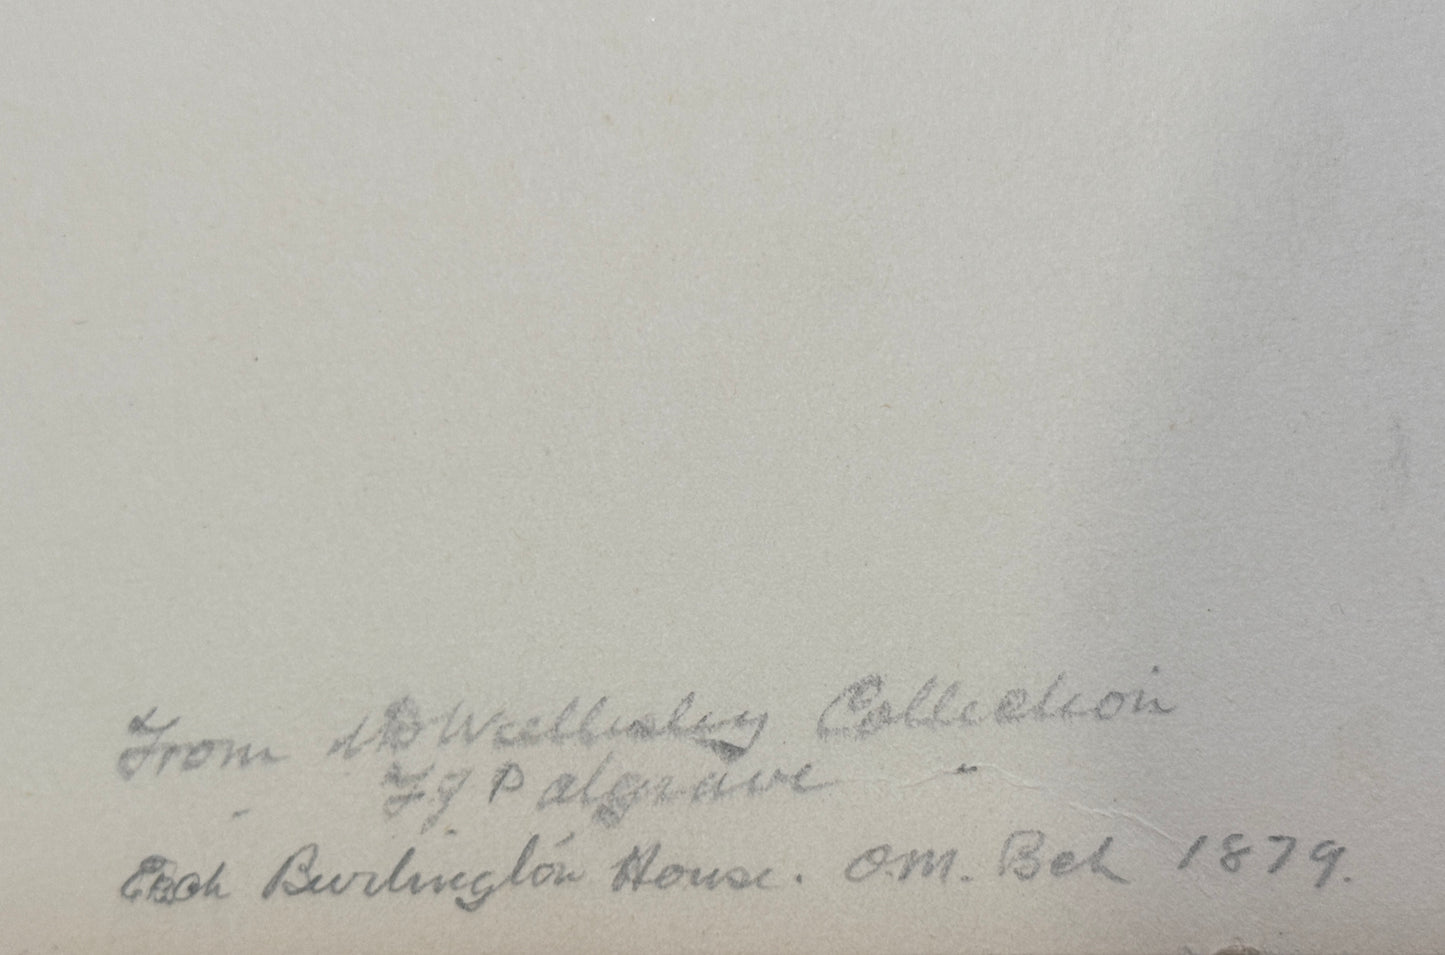 From Wellesley Collection
F J Palgrave
Exch Burlington House. O.M. Exh 1879.